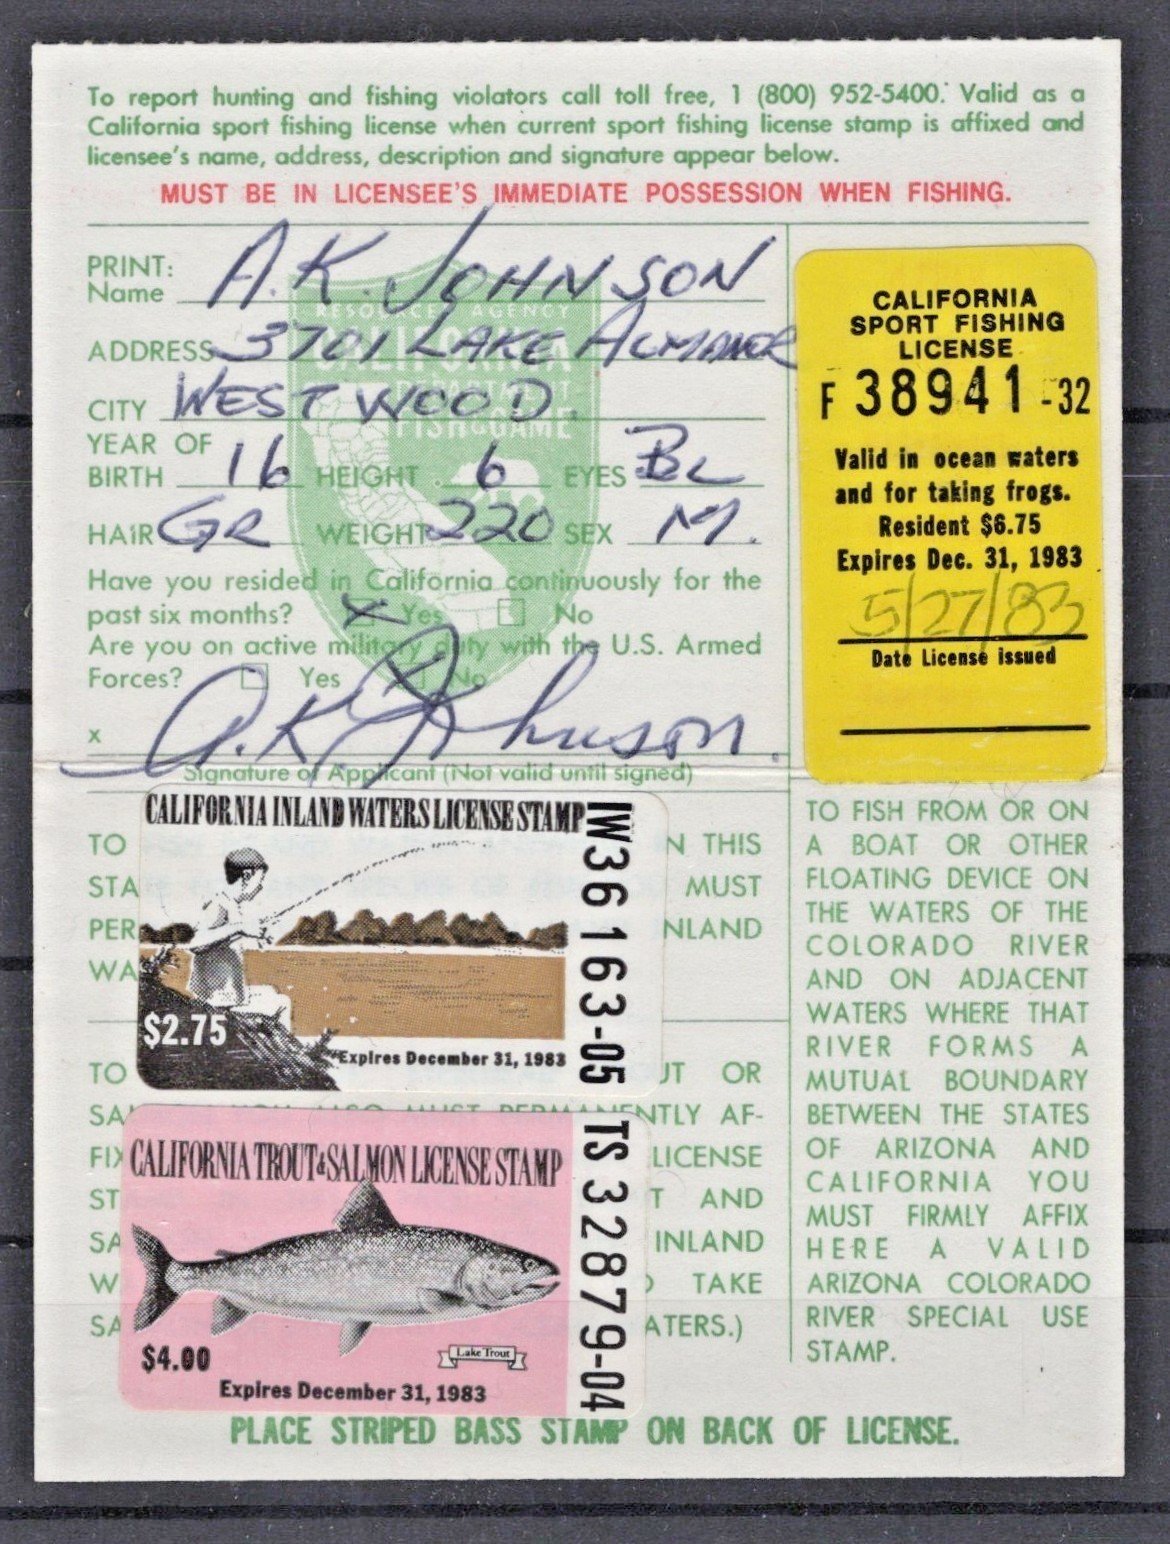 To report hunting and fishing violators call toll free, 1 (800) 952-5400. Valid as a
California sport fishing license when current sport fishing license stamp is affixed and
licensee's name, address, description and signature appear below.
MUST BE IN LICENSEE'S IMMEDIATE POSSESSION WHEN FISHING.
PRINT:
Name A.K. JOHNSON
RESOURCES AGENCY
ADDRESS 3701 LAKE ALMANOR
CALIFORNIA
DEPARTMENT
CITY WESTWOOD.
FISH & GAME
YEAR OF
BIRTH 16 HEIGHT 6 EYES BL
HAIR GR WEIGHT 220 SEX M.
Have you resided in California continuously for the
past six months? X Yes No
Are you on active military duty with the U.S. Armed
Forces? Yes X No
x A.K. Johnson.
Signature of Applicant (Not valid until signed)
CALIFORNIA
SPORT FISHING
LICENSE
F 38941-32
Valid in ocean waters
and for taking frogs.
Resident $6.75
Expires Dec. 31, 1983
5/27/83
Date License issued
CALIFORNIA INLAND WATERS LICENSE STAMP
IW36163-05
$2.75
Expires December 31, 1983
TO
IN THIS
STA
MUST
PER
NLAND
WA
TO
UT OR
SA
YOU ALSO MUST PERMANENTLY AF-
FIX
LICENSE
ST
T AND
SA
INLAND
W
TAKE
SA
ATERS.)
CALIFORNIA TROUT & SALMON LICENSE STAMP
TS 32879-04
$4.00
Lake Trout
Expires December 31, 1983
TO FISH FROM OR ON
A BOAT OR OTHER
FLOATING DEVICE ON
THE WATERS OF THE
COLORADO RIVER
AND ON ADJACENT
WATERS WHERE THAT
RIVER FORMS A
MUTUAL BOUNDARY
BETWEEN THE STATES
OF ARIZONA AND
CALIFORNIA YOU
MUST FIRMLY AFFIX
HERE A VALID
ARIZONA COLORADO
RIVER SPECIAL USE
STAMP.
PLACE STRIPED BASS STAMP ON BACK OF LICENSE.